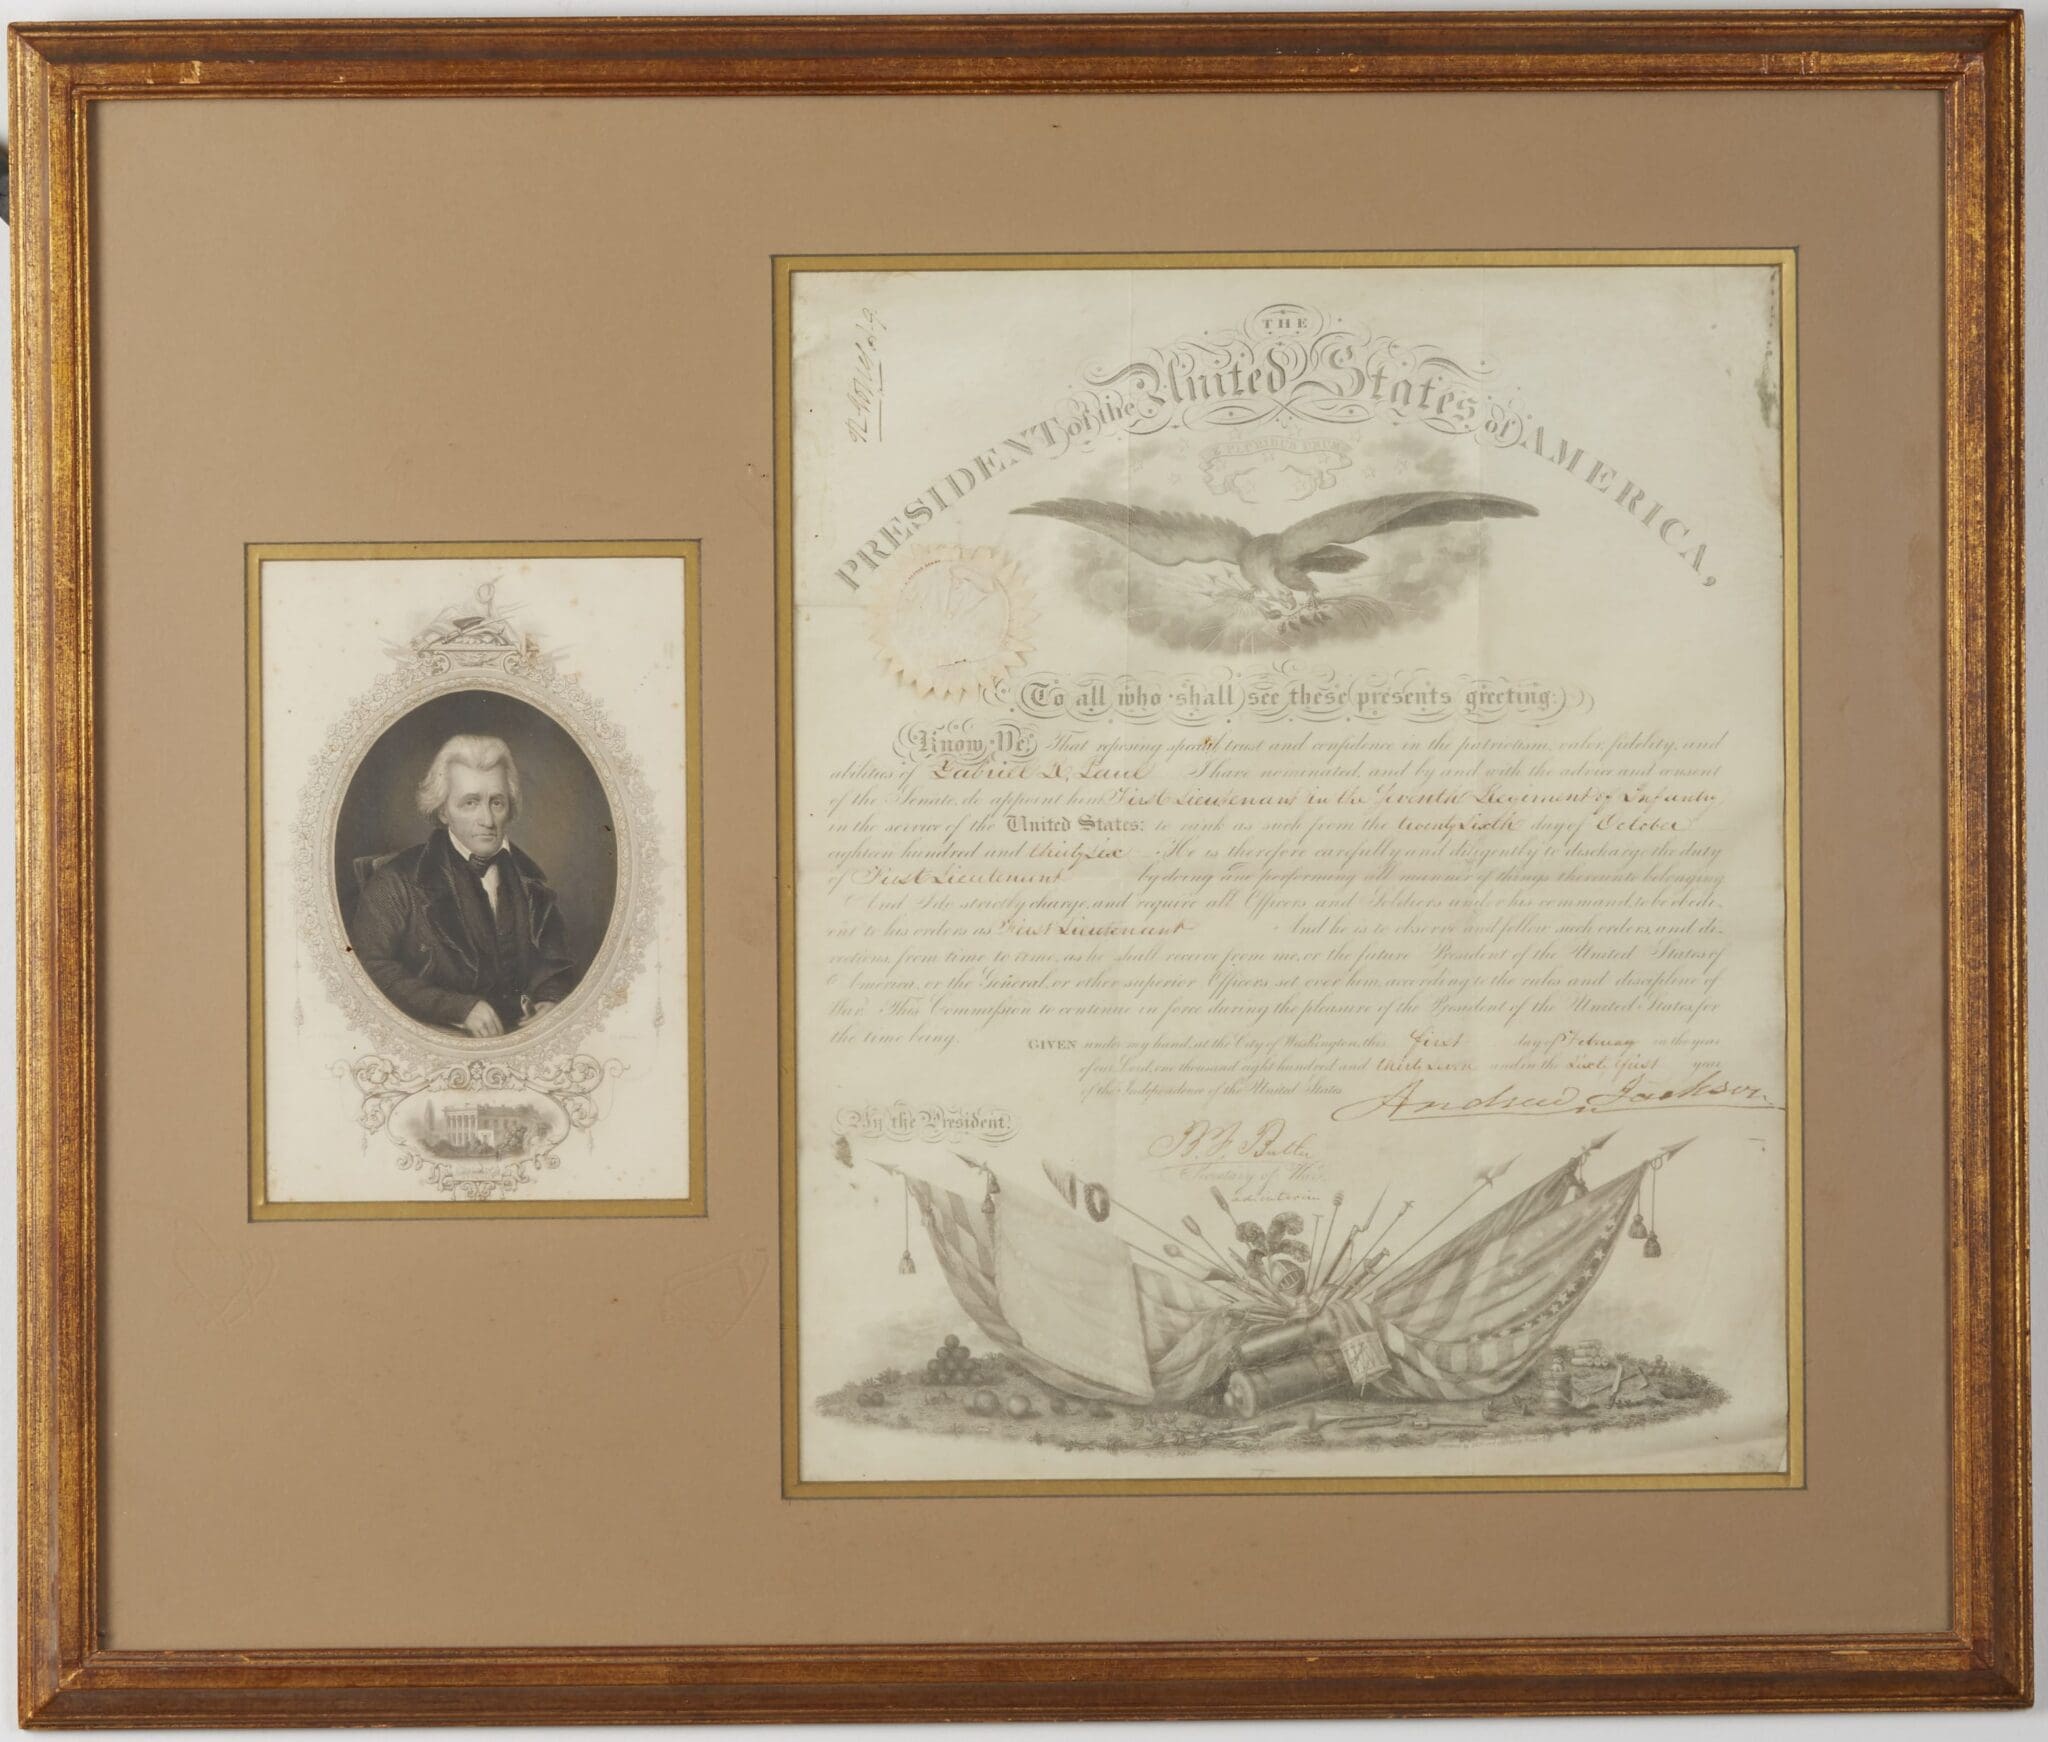 THE
PRESIDENT of the United States of AMERICA,
E PLURIBUS UNUM
To all who shall see these presents greeting:
Know Ye, That reposing special trust and confidence in the patriotism, valor, fidelity, and
abilities of Gabriel I have nominated, and by and with the advice and consent
of the Senate, do appoint him First Lieutenant in the Seventh Regiment of Infantry
in the service of the United States: to rank as such from the twenty sixth day of October
eighteen hundred and thirty six. He is therefore carefully and diligently to discharge the duty
of First Lieutenant by doing and performing all manner of things thereunto belonging.
And I do strictly charge, and require all Officers and Soldiers under his command, to be obedi-
ent to his orders as First Lieutenant And he is to observe and follow such orders, and di-
rections, from time to time, as he shall receive from me, or the future President of the United States of
America, or the General, or other superior Officers set over him, according to the rules and discipline of
War. This Commission to continue in force during the pleasure of the President of the United States, for
the time being.
GIVEN under my hand, at the City of Washington, this first day of February in the year
of our Lord, one thousand eight hundred and thirty seven and in the sixty first year
of the Independence of the United States
Andrew Jackson
By the President.
B. F. Butler
Secretary of War.
ad interim